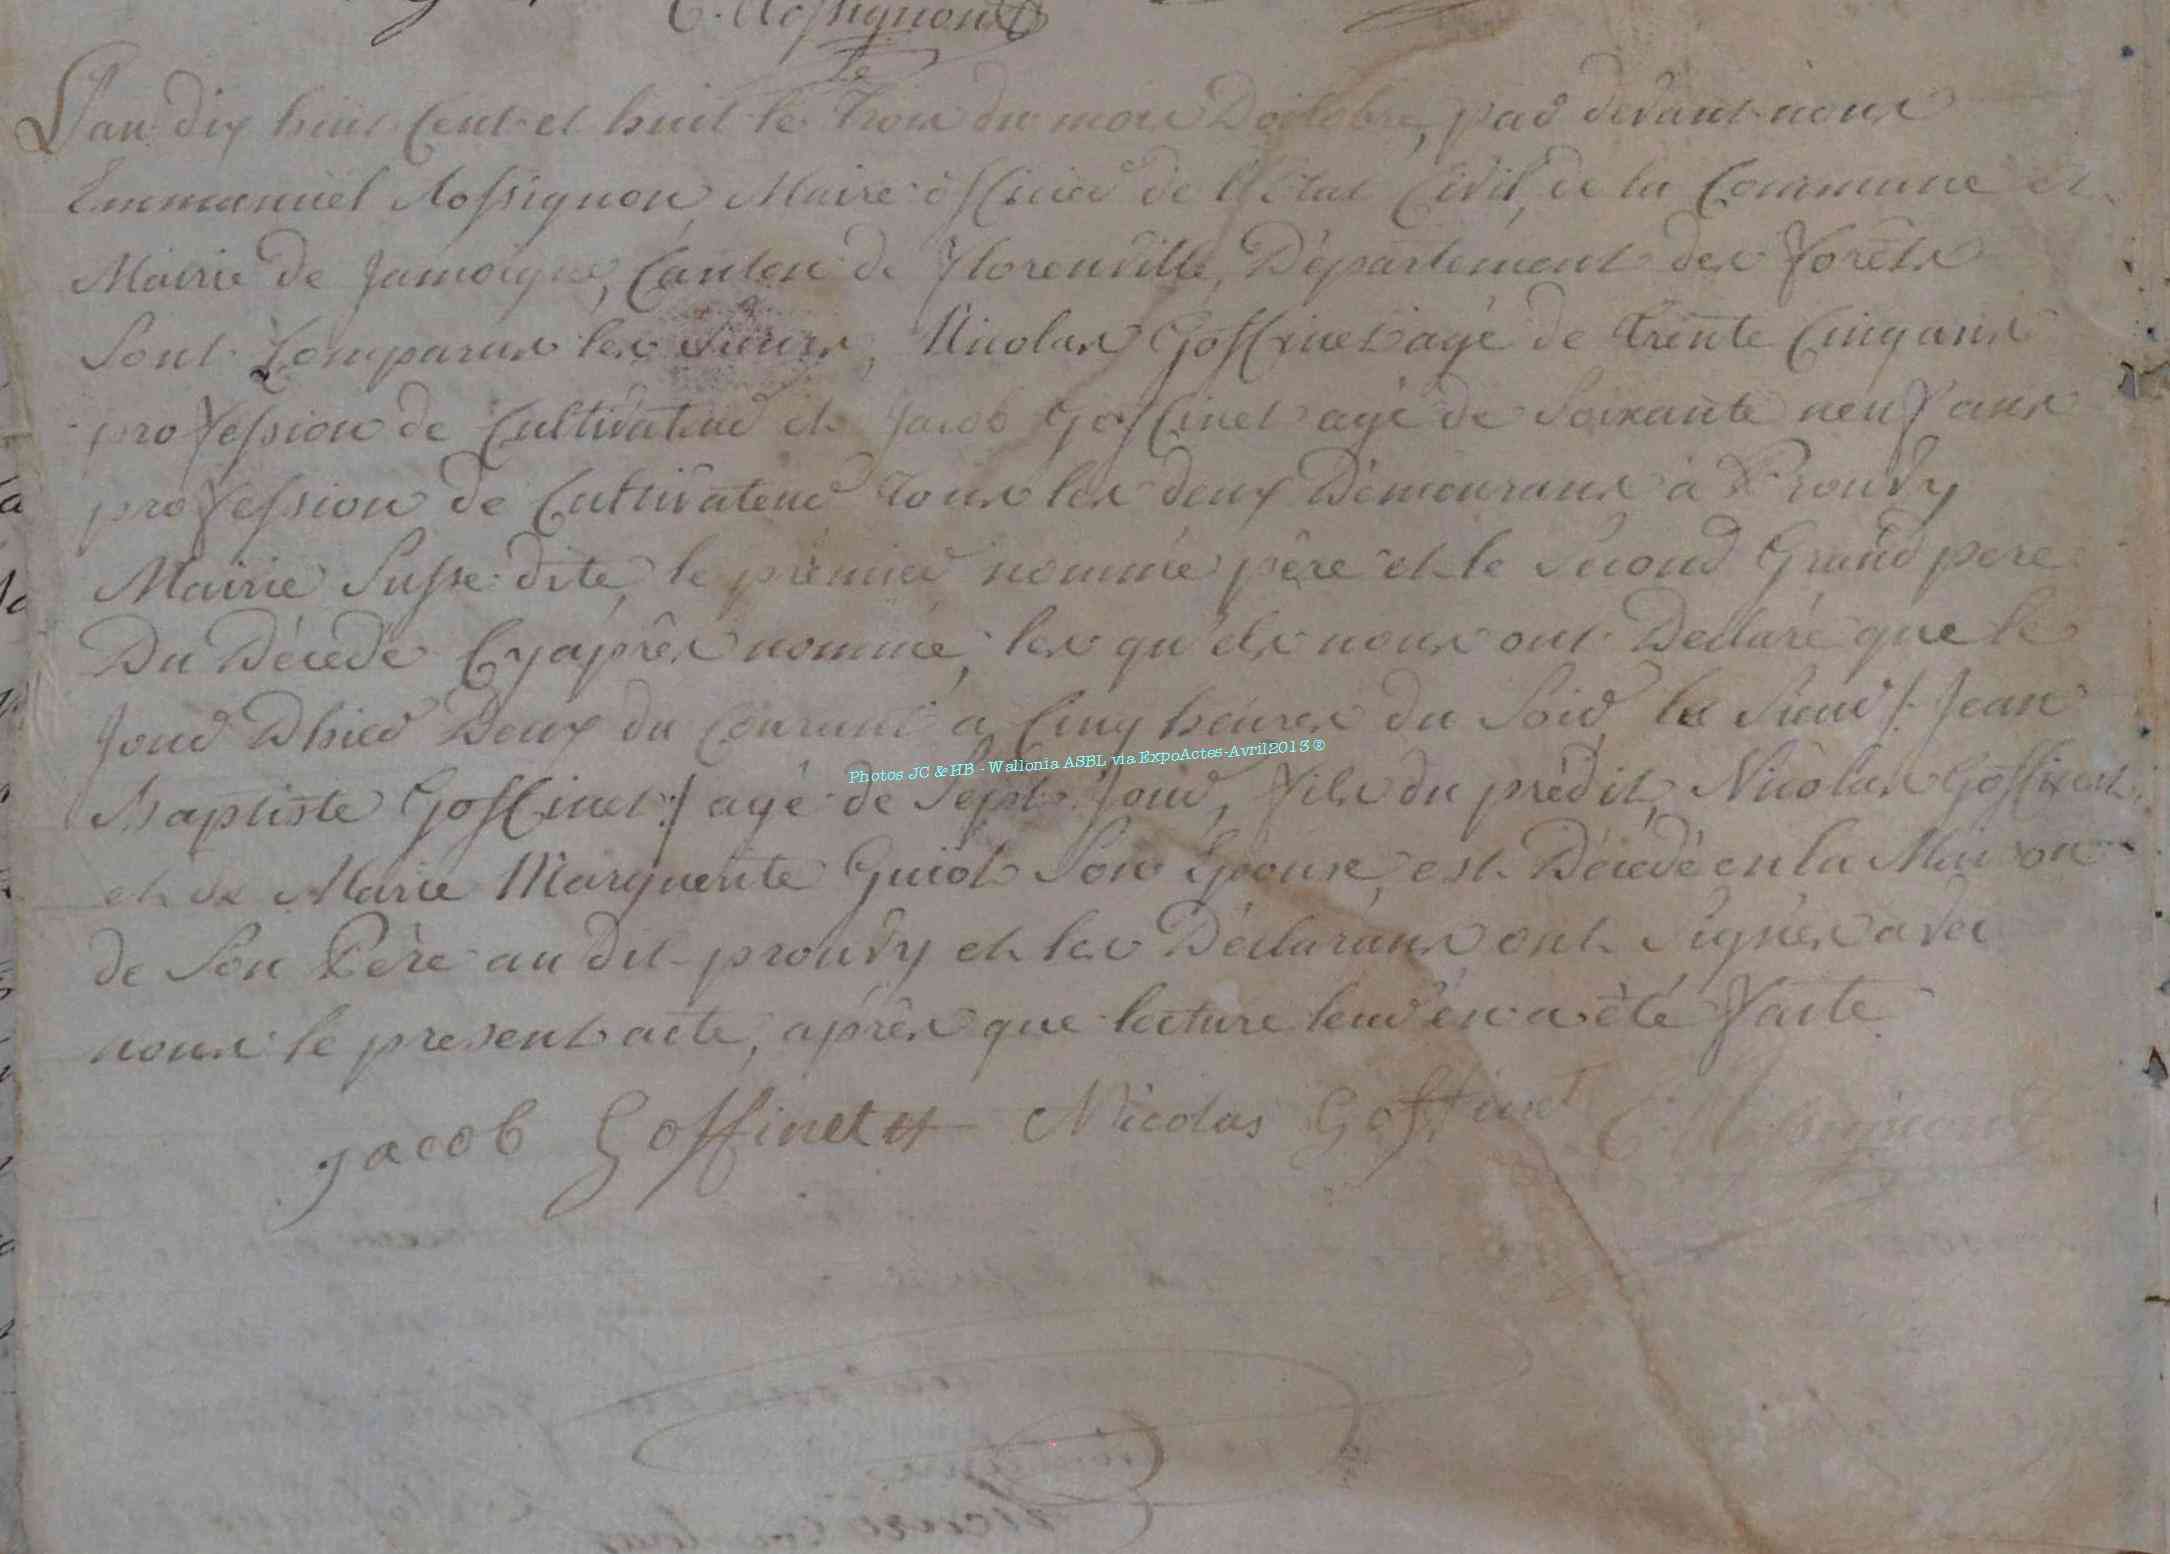 E. Rossignon
Le
L'an dix huit Cent et huit le Trois du mois D'octobre, par devant nous
Emmanuel Rossignon, Maire officier de l'Etat Civil, de la Commune et
Mairie de Jamoigne, Canton de Florenville, Département des forêts
Sont Comparus les Sieurs, Nicolas Goffinet agé de trente Cinq ans
profession de Cultivateur et Jacob Goffinet agé de Soixante neuf ans
profession de Cultivateur Tous les deux Démeurans à Prouvy
Mairie Susse dite, le prémier nommé père et le Sécond Grand pere
Du Décédé Cy après nommé, les qu'els nous ont Declaré que le
Jour D'hier Deux du Courant à Cinq heures du Soir, le Sieur /: Jean
Baptiste Goffinet :/ agé de Sept Jour, fils du prédit, Nicolas Goffinet,
et de Marie Marguerite Guiot Son Epouse, est Décédé en la Maison
de Son Père au dit prouvy et les Déclarans ont Signés avec
nous le present acte, après que lecture leur en a été faite
Jacob Goffinet Nicolas Goffinet E. Rossignon
Photos JC & HB - Wallonia ASBL via ExpoActes-Avril2013 ®